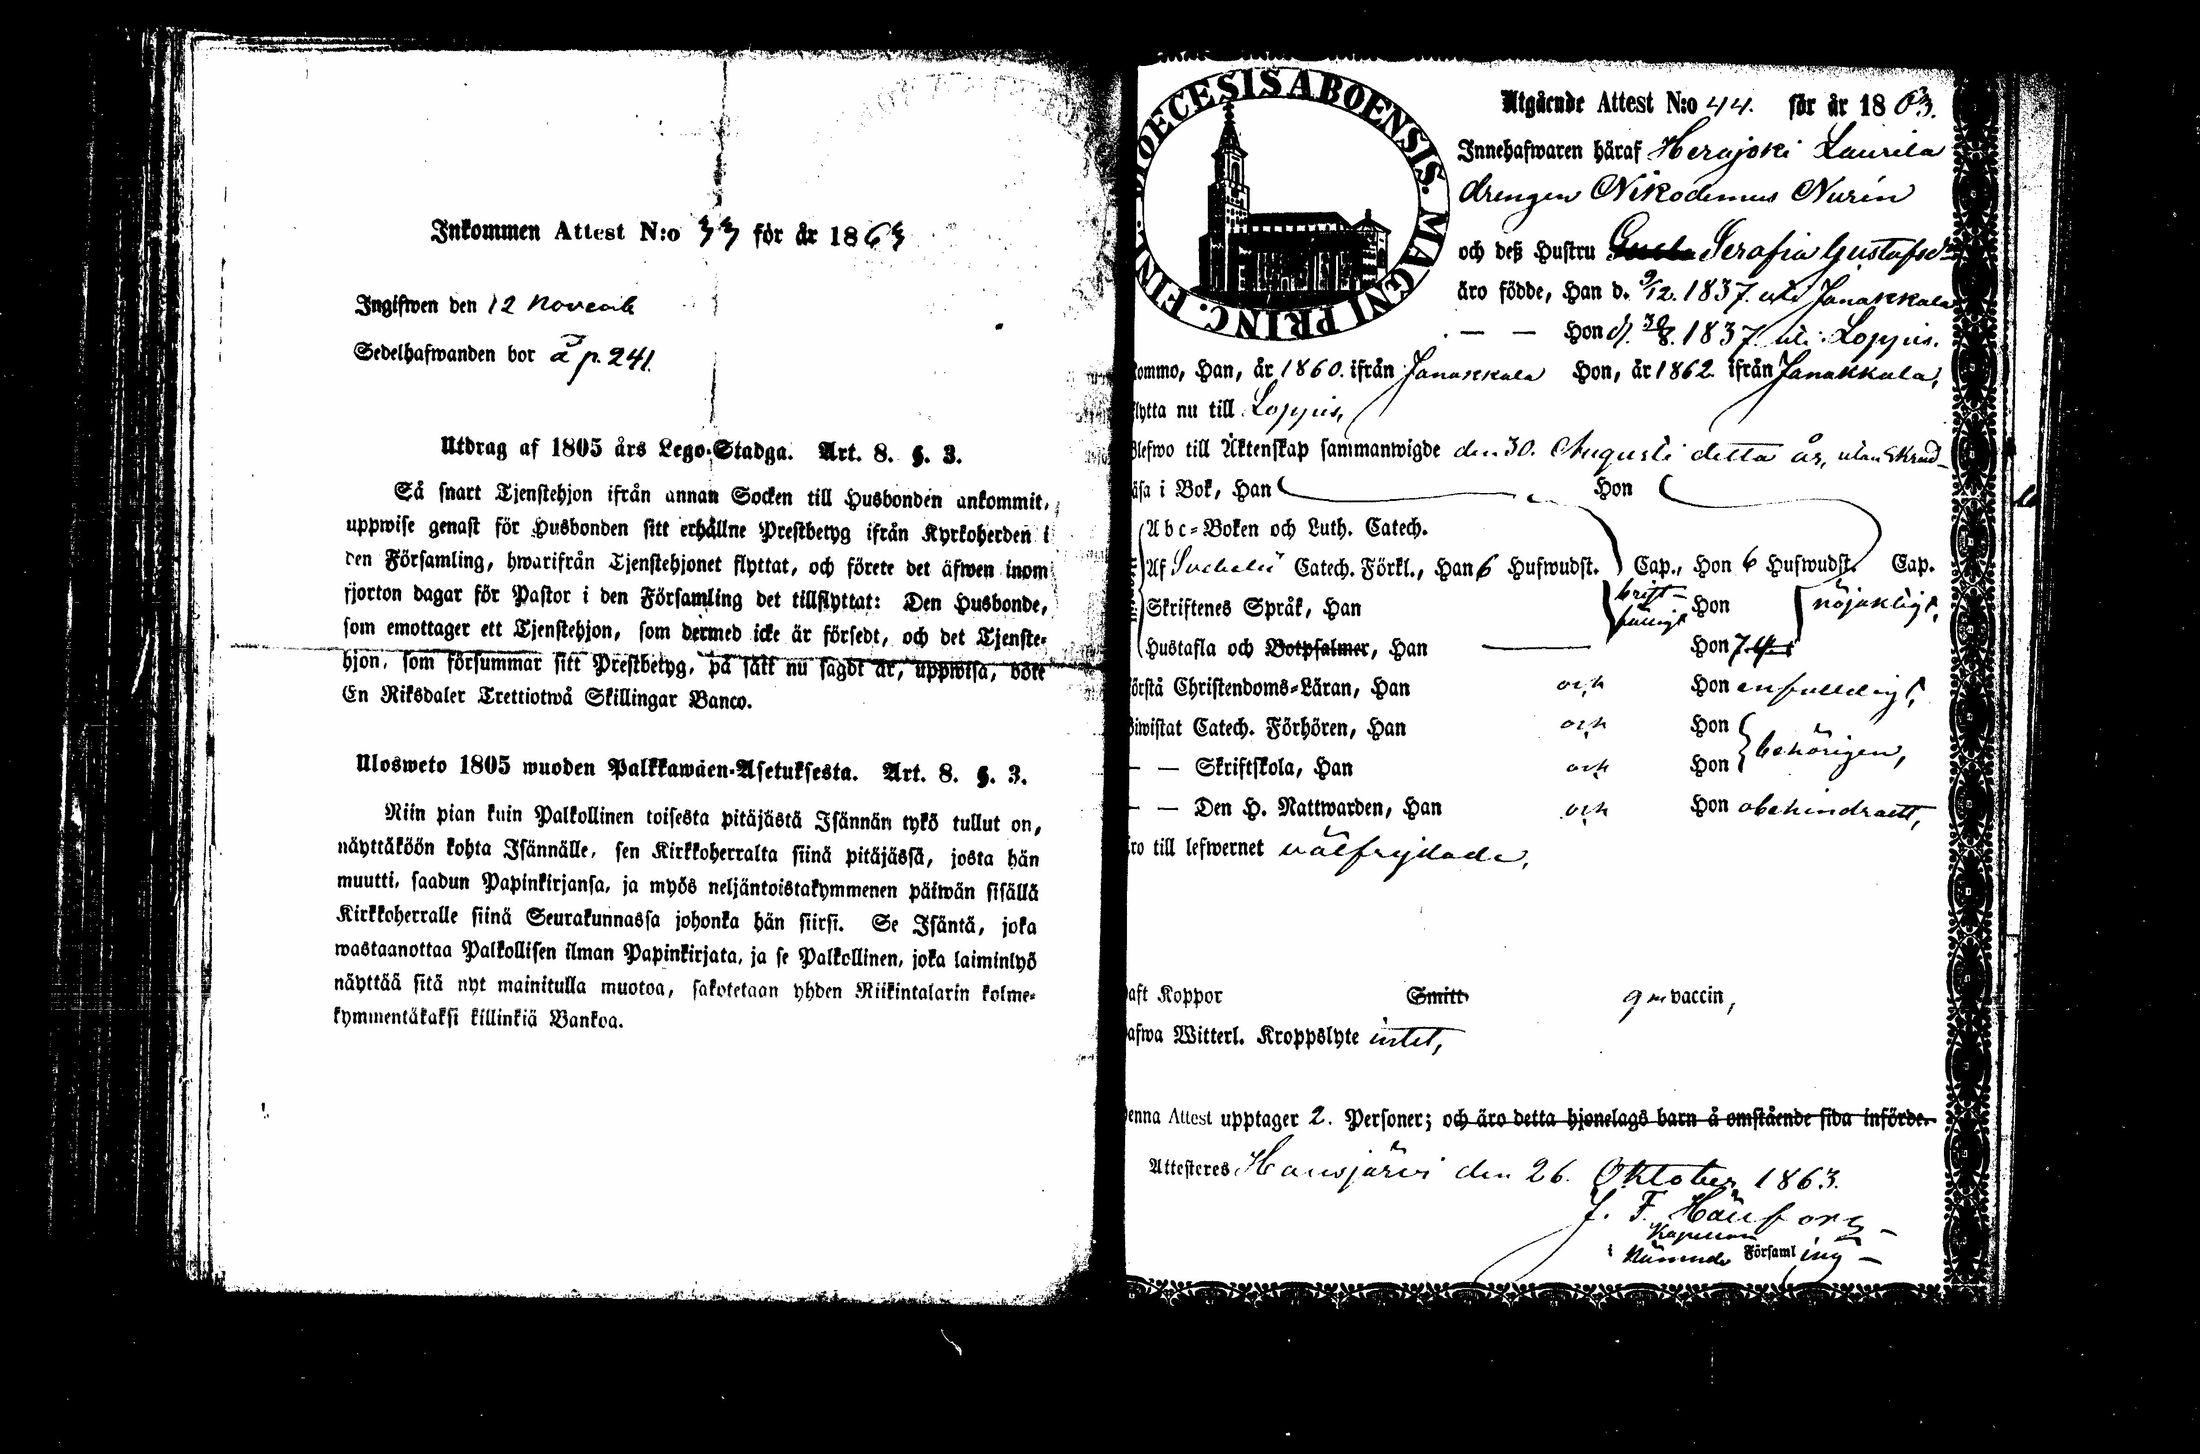 Inkommen Attest N:o 33 för år 1863
Ingifwen den 12 Novemb
Sedelhafwanden bor å p. 241.
Utdrag af 1805 års Lego-Stadga. Art. 8. §. 3.
Så snart Tjenstehjon ifrån annan Socken till Husbonden ankommit,
uppwise genast för Husbonden sitt erhållne Prestbetyg ifrån Kyrkoherden i
den Församling, hwarifrån Tjenstehjonet flyttat, och förete det äfwen inom
fjorton dagar för Pastor i den Församling det tillflyttat: Den Husbonde,
som emottager ett Tjenstehjon, som dermed icke är försedt, och det Tjenste-
hjon, som försummar sitt Prestbetyg, på sätt nu sagdt är, uppwisa, böte
En Riksdaler Trettiotwå Skillingar Banco.
Ulosweto 1805 wuoden Palkkawäen-Asetuksesta. Art. 8. §. 3.
Niin pian kuin Palkollinen toisesta pitäjästä Isännän tykö tullut on,
näyttäköön kohta Isännälle, sen Kirkkoherralta siinä pitäjässä, josta hän
muutti, saadun Papinkirjansa, ja myös neljäntoistakymmenen päiwän sisällä
Kirkkoherralle siinä Seurakunnassa johonka hän siirsi. Se Isäntä, joka
wastaanottaa Palkollisen ilman Papinkirjata, ja se Palkollinen, joka laiminlyö
näyttää sitä nyt mainitulla muotoa, sakotetaan yhden Riikintalarin kolme-
kymmentäkaksi killinkiä Bankoa.
DIOECESIS ABOENSIS. MAGNI PRINC. FINL.
Utgående Attest N:o 44. för år 1863.
Innehafwaren häraf Herajoki Laurila
drengen Nikodemus Nurin
och deß Hustru Serafia Gustafsdr
äro födde, Han d. 9/12. 1837. uti Janakkala
— — Hon d. 30/8. 1837 uti Loppis.
kommo, Han, år 1860. ifrån Janakkala Hon, år 1862 ifrån Janakkala,
flytta nu till Loppis,
Blefwo till Äktenskap sammanwigde den 30. Augusti detta år, utan skrud
läsa i Bok, Han Hon
Abc-Boken och Luth. Catech.
Af Svebelii Catech. Förkl., Han 6 Hufwudst. Cap., Hon 6 Hufwudst. Cap.
Skriftenes Språk, Han bristfälligt Hon nöjaktigt,
Hustafla och Botpsalmer, Han — Hon
förstå Christendoms-Läran, Han och Hon enfaldigt,
Biwistat Catech. Förhören, Han och Hon
— — Skriftskola, Han och Hon behörigen,
— — Den H. Nattwarden, Han och Hon obehindradt,
äro till lefwernet välfrejdade,
haft Koppor Smitt gm vaccin,
hafwa Witterl. Kroppslyte intet,
Denna Attest upptager 2. Personer; och äro detta hjonelags barn å omstående sida införde.
Attesteres Hausjärvi den 26. Oktober 1863.
J. F.
Kapellan
i Nämnde Församling